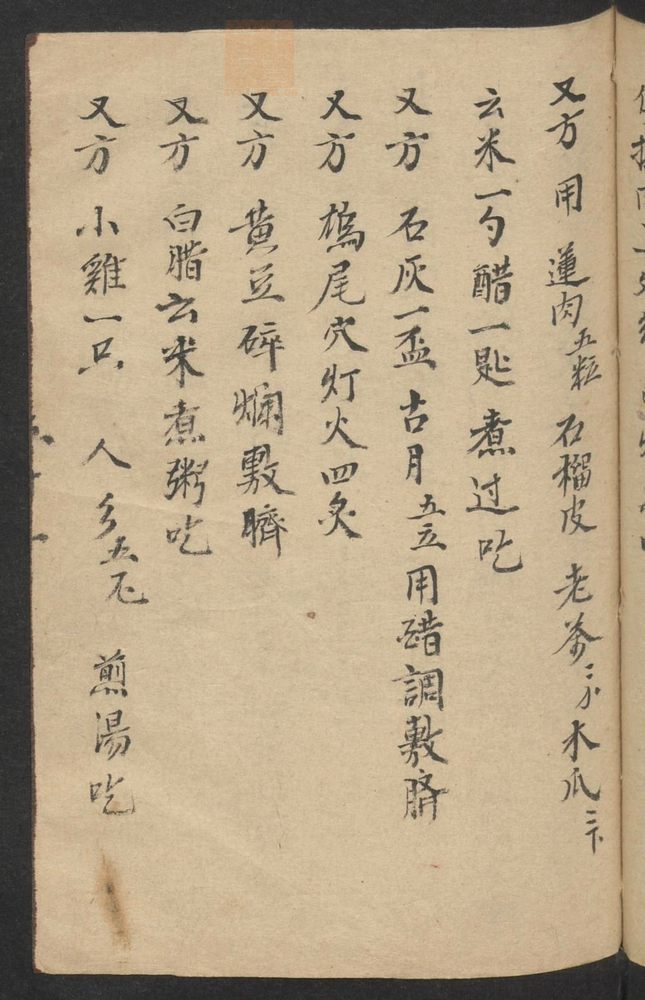 又方 用 蓮肉五粒 石榴皮 老茶 木瓜
云米一勺醋一匙煮过吃
又方 石灰一盃古月五立用醋調敷臍
又方 鳩尾穴灯火四灸
又方 黄豆碎爛敷臍
又方 白腊云米煮粥吃
又方 小雞一只 人 煎湯吃